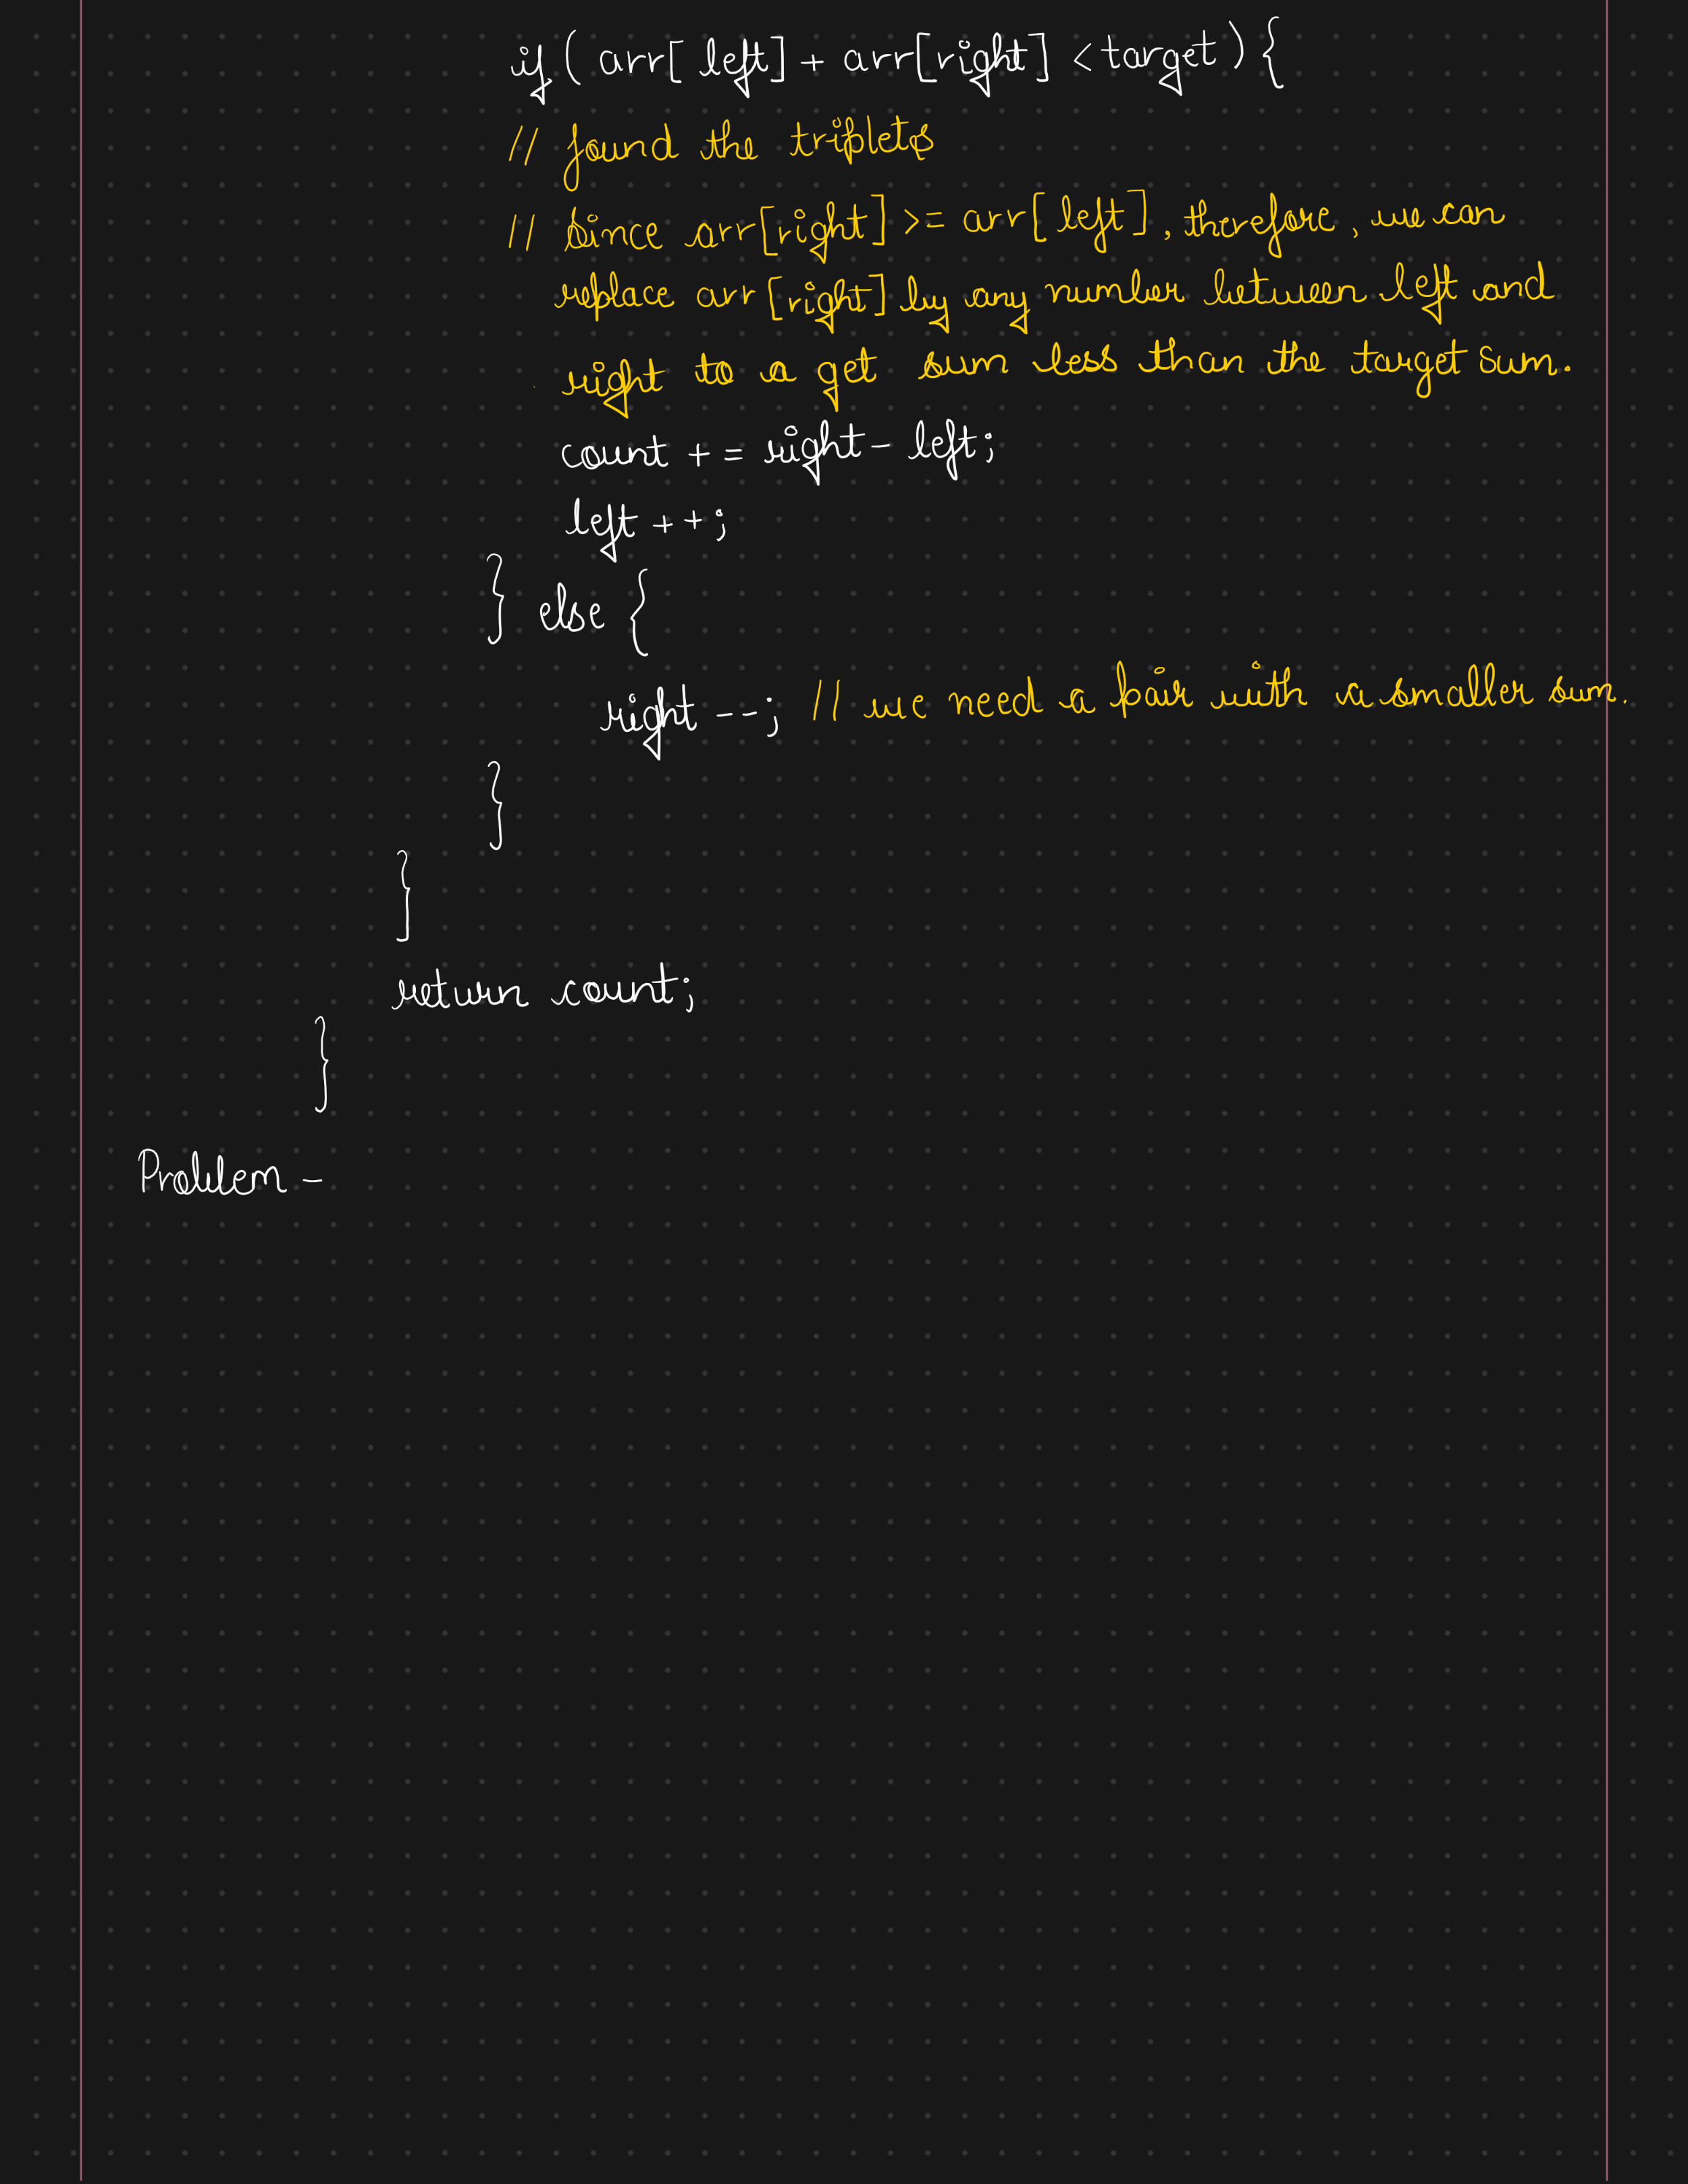 if ( arr[ left] + arr[right] < target) {
// found the triplets
// Since arr[right] >= arr[left], therefore, we can
replace arr[right] by any number between left and
right to a get sum less than the target sum.
count += right - left;
left ++;
} else {
right --; // we need a pair with a smaller sum.
}
}
return count;
}
Problem -